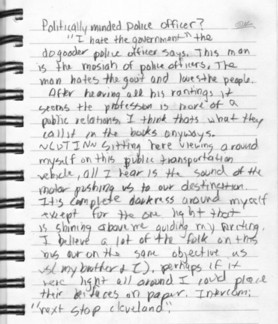 Politically minded police officer?
"I hate the government" the
dogooder police officer says. This man
is the mosiah of police officers. The
man hates the govt and loves the people.
After hearing all his rantings it
seems the profession is more of a
public relations. I think thats what they
call it in the books anyways.
Sitting here viewing around
myself on this public transportation
vehicle, all I hear is the sound of the
motor pushing us to our destination.
It is complete darkness around myself
except for the one light that
is shining above me guiding my
I believe a lot of the folk on this
bus are on the same objective us
(my brother & I), perhaps if it
were light all around I could place
their on paper. Intercom:
"next stop cleveland"